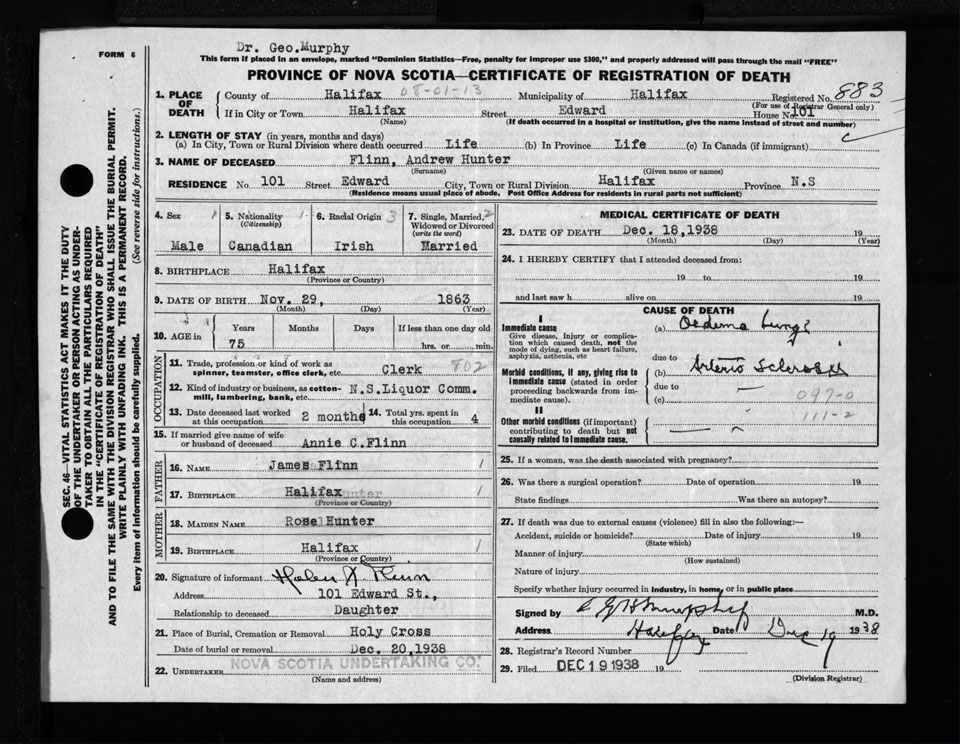 Dr. Geo.Murphy
FORM 6
This form if placed in an envelope, marked "Dominion Statistics—Free, penalty for improper use $300," and properly addressed will pass through the mail "FREE"
PROVINCE OF NOVA SCOTIA—CERTIFICATE OF REGISTRATION OF DEATH
1. PLACE OF DEATH
County of Halifax 08-01-13 Municipality of Halifax Registered No. 883
(For use of Registrar General only)
If in City or Town Halifax Street Edward House No. 101
(Name) (If death occurred in a hospital or institution, give the name instead of street and number)
2. LENGTH OF STAY (in years, months and days)
(a) In City, Town or Rural Division where death occurred Life (b) In Province Life (c) In Canada (if immigrant)
3. NAME OF DECEASED Flinn, Andrew Hunter
(Surname) (Given name or names)
RESIDENCE No. 101 Street Edward City, Town or Rural Division Halifax Province N.S
(Residence means usual place of abode. Post Office Address for residents in rural parts not sufficient)
SEC. 46—VITAL STATISTICS ACT MAKES IT THE DUTY
OF THE UNDERTAKER OR PERSON ACTING AS UNDER-
TAKER TO OBTAIN ALL THE PARTICULARS REQUIRED
IN THE "CERTIFICATE OF REGISTRATION OF DEATH"
AND TO FILE THE SAME WITH THE DIVISION REGISTRAR WHO SHALL ISSUE THE BURIAL PERMIT.
WRITE PLAINLY WITH UNFADING INK. THIS IS A PERMANENT RECORD.
Every item of information should be carefully supplied. (See reverse side for instructions.)
4. Sex 5. Nationality 6. Racial Origin 3 7. Single, Married, 2
(Citizenship) Widowed or Divorced
(write the word)
Male Canadian Irish Married
8. BIRTHPLACE Halifax
(Province or Country)
9. DATE OF BIRTH Nov. 29, 1863
(Month) (Day) (Year)
10. AGE in Years Months Days If less than one day old
75 hrs. or min.
OCCUPATION
11. Trade, profession or kind of work as
spinner, teamster, office clerk, etc. Clerk 802
12. Kind of industry or business, as cotton-
mill, lumbering, bank, etc. N.S.Liquor Comm.
13. Date deceased last worked
at this occupation 2 months
14. Total yrs. spent in
this occupation 4
15. If married give name of wife
or husband of deceased Annie C.Flinn
FATHER
16. NAME James Flinn 1
17. BIRTHPLACE Halifax 1
(Province or Country)
MOTHER
18. MAIDEN NAME Rose Hunter
19. BIRTHPLACE Halifax 1
(Province or Country)
20. Signature of informant Flinn
Address 101 Edward St.,
Relationship to deceased Daughter
21. Place of Burial, Cremation or Removal Holy Cross
Date of burial or removal Dec. 20,1938
22. UNDERTAKER NOVA SCOTIA UNDERTAKING CO.
(Name and address)
MEDICAL CERTIFICATE OF DEATH
23. DATE OF DEATH Dec. 18,1938 19
(Month) (Day) (Year)
24. I HEREBY CERTIFY that I attended deceased from:
19 to 19
and last saw h alive on 19
CAUSE OF DEATH
I
Immediate cause
Give disease, injury or complica-
tion which caused death, not the
mode of dying, such as heart failure,
asphyxia, asthenia, etc
(a) Oedema Lungs
due to
Morbid conditions, if any, giving rise to
immediate cause (stated in order
proceeding backwards from im-
mediate cause).
(b) Arterio Sclerosis
due to —
(c) 097-0
111-2
II
Other morbid conditions (if important)
contributing to death but not
causally related to immediate cause.
25. If a woman, was the death associated with pregnancy?
26. Was there a surgical operation? Date of operation 19
State findings Was there an autopsy?
27. If death was due to external causes (violence) fill in also the following:—
Accident, suicide or homicide? Date of injury 19
(State which)
Manner of injury
(How sustained)
Nature of injury
Specify whether injury occurred in industry, in home, or in public place
Signed by Murphy M.D.
Address Halifax Date Dec 19 1938
28. Registrar's Record Number
29. Filed DEC 19 1938 19
(Division Registrar)